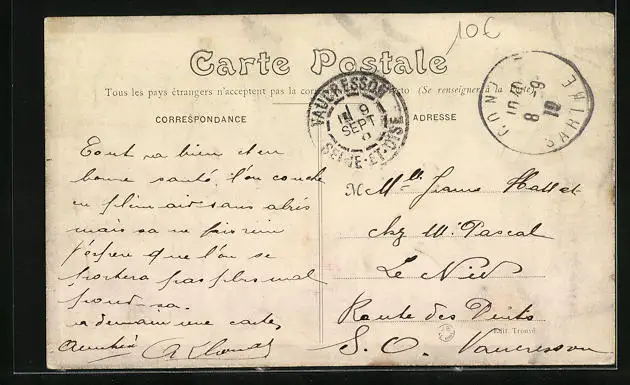 10€
Carte Postale
Tous les pays étrangers n'acceptent pas la recto (Se renseigner à la Poste)
CORRESPONDANCE
ADRESSE
VAUCRESSON
9
SEPT
SEINE-ET-OISE
8 -9
10
SARTHE
Tout va bien et en
bonne santé. l'on couche
en plein air sans abris
mais sa ne fais rien
j'espere que l'on se
portera pas plus mal
pour sa.
a demain une carte,
M Mlle Jeanne
chez Mr Pascal
Le Nid
Route des Puits
S. O. Vaucresson
Edit. Trouvé